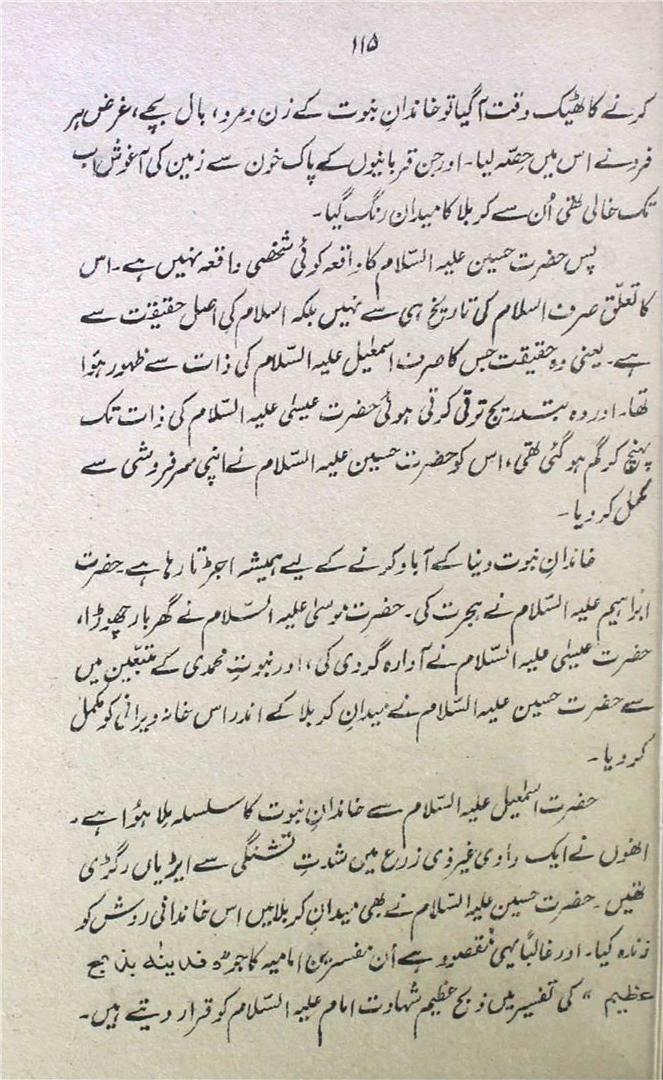 ۱۱۵
کرنے کا ٹھیک وقت آ گیا تو خاندانِ نبوت کے زن و مرد، بال بچے، غرض ہر
فرد نے اس میں حصّہ لیا۔ اور جن قربانیوں کے پاک خون سے زمین کی آغوش اب
تک خالی تھی اُن سے کربلا کا میدان رنگ گیا۔
پس حضرت حسین علیہ السّلام کا واقعہ کوئی شخصی واقعہ نہیں ہے۔ اس
کا تعلّق صرف اسلام کی تاریخ ہی سے نہیں بلکہ اسلام کی اصل حقیقت سے
ہے۔ یعنی وہ حقیقت جس کا صرف اسمٰعیل علیہ السّلام کی ذات سے ظہور ہوُا
تھا۔ اور وہ بتدریج ترقی کرتی ہوئی حضرت عیسٰی علیہ السّلام کی ذات تک
پہنچ کر گم ہو گئی تھی، اس کو حضرت حسین علیہ السّلام نے اپنی سرفروشی سے
مکمل کر دیا۔
خاندانِ نبوت دنیا کے آباد کرنے کے لیے ہمیشہ اجڑتا رہا ہے۔ حضرت
ابراہیم علیہ السّلام نے ہجرت کی۔ حضرت موسٰی علیہ السّلام نے گھر بار چھوڑا،
حضرت عیسٰی علیہ السّلام نے آوارہ گردی کی، اور نبوتِ محمدی کے متبعّین میں
سے حضرت حسین علیہ السّلام نے میدانِ کربلا کے اندر اس خانہ ویرانی کو مکمل
کر دیا۔
حضرت اسمٰعیل علیہ السّلام سے خاندانِ نبوت کا سلسلہ مِلا ہوُا ہے۔
انھوں نے ایک وادی غیر ذی زرع میں شدتِ تشنگی سے ایڑیاں رگڑی
تھیں۔ حضرت حسین علیہ السّلام نے بھی میدانِ کربلا میں اس خاندانی روش کو
زندہ کیا۔ اور غالباً یہی مقصود ہے اُن مفسرین امامیہ کا جو "وفدینٰہ بذبح
عظیم" کی تفسیر میں ذبحِ عظیم شہادت امام علیہ السّلام کو قرار دیتے ہیں۔